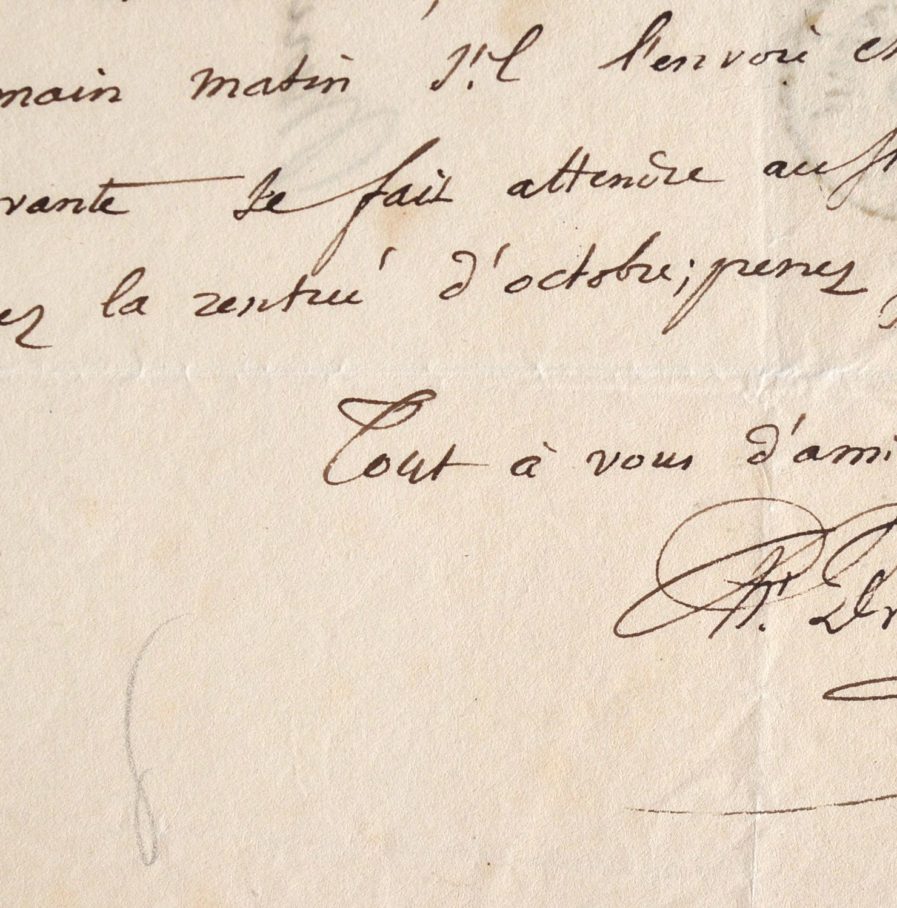 main matin s'il l'envoie
vante se fait attendre
ez la rentrée d'octobre; pensez
Tout à vous d'ami